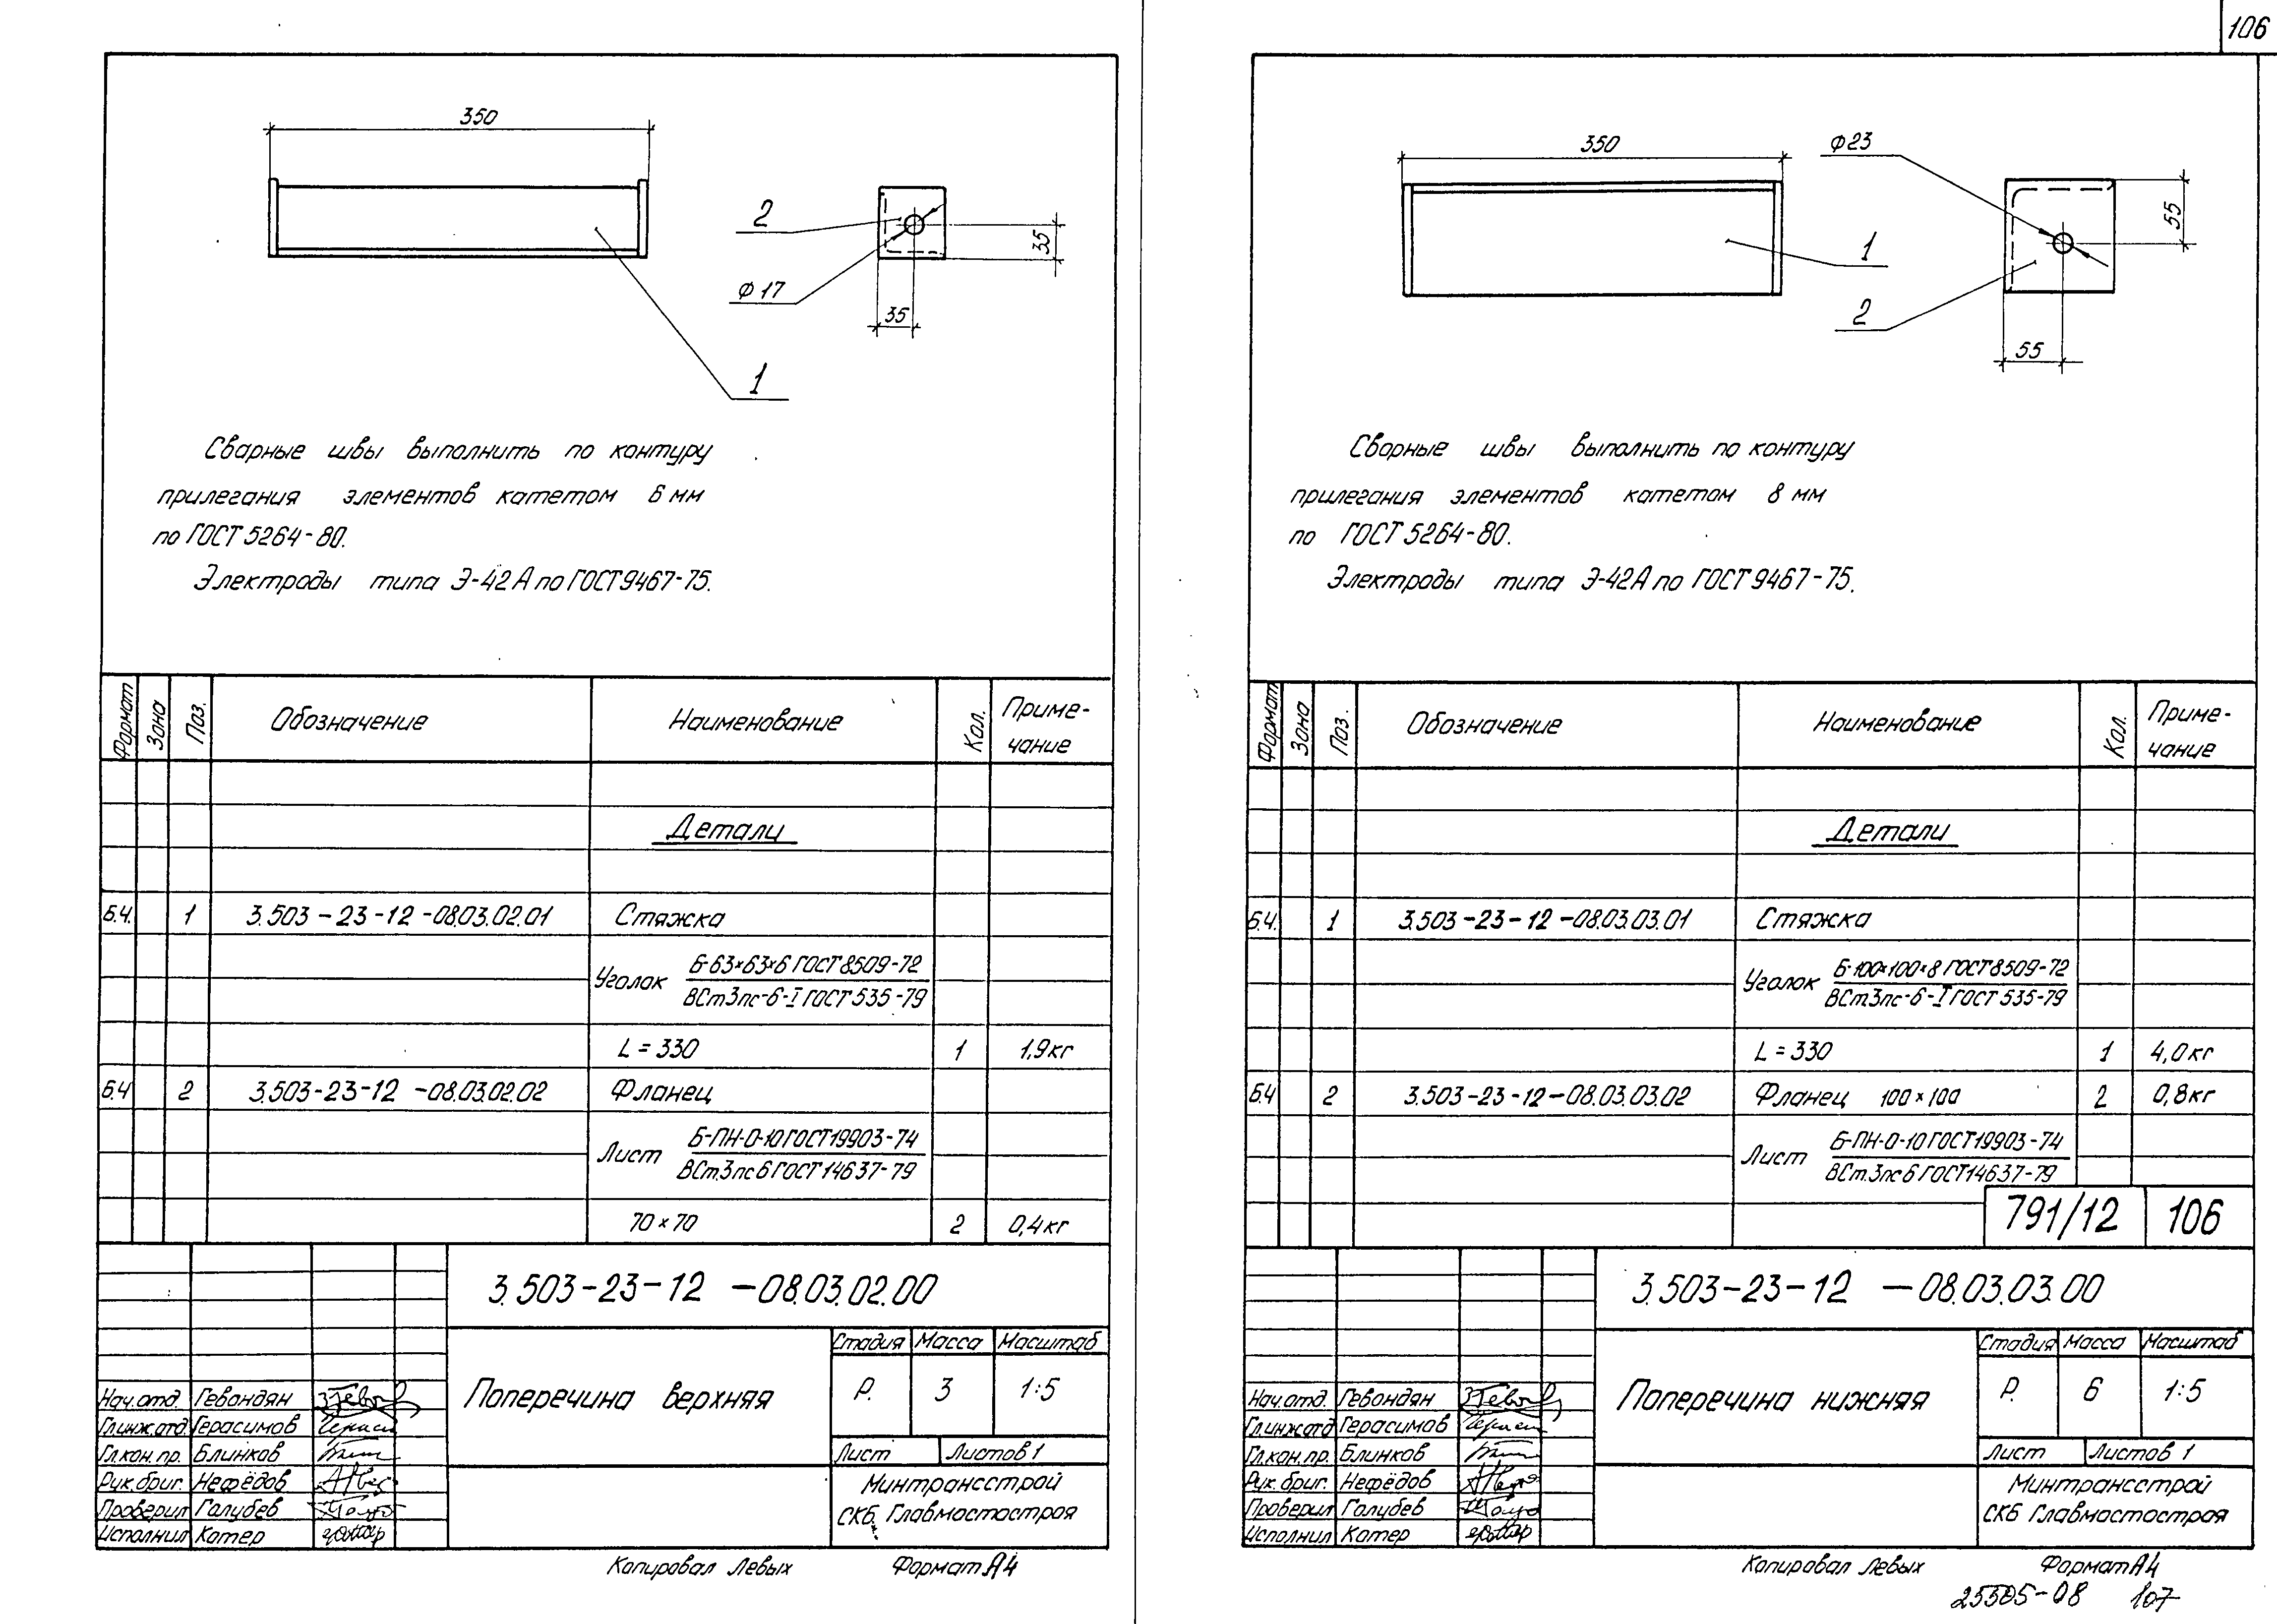 106
350
2
Ф17
35
35
1
Сварные швы выполнить по контуру
прилегания элементов катетом 6 мм
по ГОСТ 5264-80.
Электроды типа Э-42А по ГОСТ 9467-75.
Формат Зона Поз. Обозначение Наименование Кол. Приме-
чание
Детали
Б.Ч. 1 3.503-23-12-08.03.02.01 Стяжка
Уголок Б-63×63×6 ГОСТ 8509-72
ВСт3пс-6-I ГОСТ 535-79
L=330 1 1,9кг
Б.Ч 2 3.503-23-12-08.03.02.02 Фланец
Лист Б-ПН-О-10 ГОСТ 19903-74
ВСт.3пс6 ГОСТ 14637-79
70×70 2 0,4кг
3.503-23-12-08.03.02.00
Поперечина верхняя
Стадия Масса Масштаб
Р. 3 1:5
Лист Листов 1
Минтрансстрой
СКБ Главмостостроя
Нач.отд. Гевондян
Гл.инж.отд. Герасимов
Гл.кон.пр. Блинков
Рук.бриг. Нефёдов
Проверил Голубев
Исполнил Котер
Копировал Левых Формат А4
350
Ф23
1
2
55
55
Сворные швы выполнить по контуру
прилегания элементов катетом 8 мм
по ГОСТ 5264-80.
Электроды типа Э-42А по ГОСТ 9467-75.
Формат Зона Поз. Обозначение Наименование Кол. Приме-
чание
Детали
Б.Ч. 1 3.503-23-12-08.03.03.01 Стяжка
Уголок Б-100×100×8 ГОСТ 8509-72
ВСт.3пс-6-I ГОСТ 535-79
L=330 1 4,0кг
Б.Ч 2 3.503-23-12-08.03.03.02 Фланец 100×100 2 0,8кг
Лист Б-ПН-О-10 ГОСТ 19903-74
ВСт.3пс6 ГОСТ 14637-79
791/12 106
3.503-23-12-08.03.03.00
Поперечина нижняя
Стадия Масса Масштаб
Р. 6 1:5
Лист Листов 1
Минтрансстрой
СКБ Главмостостроя
Нач.отд. Гевондян
Гл.инж.отд Герасимов
Гл.кон.пр. Блинков
Рук.бриг. Нефёдов
Проверил Голубев
Исполнил Котер
Копировал Левых Формат А4
25505-08 107